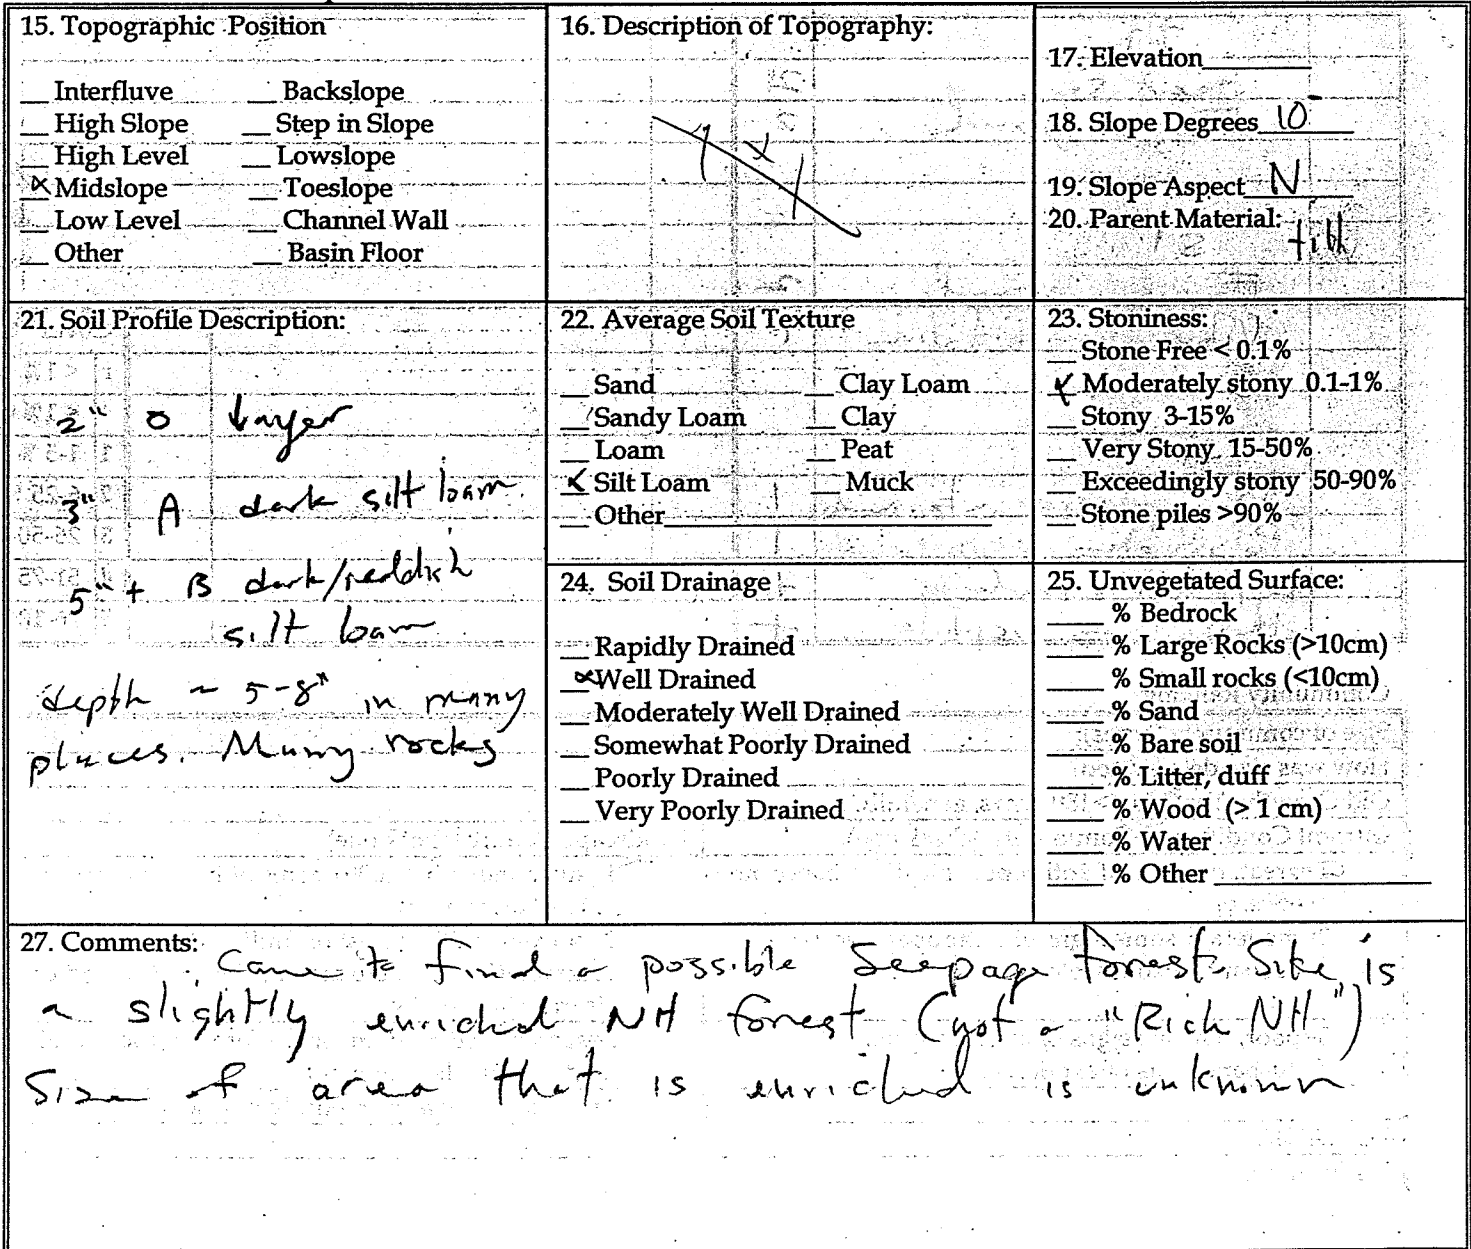 15. Topographic Position
__ Interfluve __ Backslope
__ High Slope __ Step in Slope
__ High Level __ Lowslope
x Midslope __ Toeslope
__ Low Level __ Channel Wall
__ Other __ Basin Floor
16. Description of Topography:
x
17. Elevation______
18. Slope Degrees 10
19. Slope Aspect N
20. Parent Material: till
21. Soil Profile Description:
2" O layer
3" A dark silt loam.
5"+ B dark/reddish
silt loam
depth ~ 5-8" in many
places. Many rocks
22. Average Soil Texture
__ Sand __ Clay Loam
__ Sandy Loam __ Clay
__ Loam __ Peat
x Silt Loam __ Muck
__ Other______
23. Stoniness:
__ Stone Free < 0.1%
x Moderately stony 0.1-1%
__ Stony 3-15%
__ Very Stony 15-50%
__ Exceedingly stony 50-90%
__ Stone piles >90%
24. Soil Drainage
__ Rapidly Drained
x Well Drained
__ Moderately Well Drained
__ Somewhat Poorly Drained
__ Poorly Drained
__ Very Poorly Drained
25. Unvegetated Surface:
____ % Bedrock
____ % Large Rocks (>10cm)
____ % Small rocks (<10cm)
____ % Sand
____ % Bare soil
____ % Litter, duff
____ % Wood (> 1 cm)
____ % Water
____ % Other ______
27. Comments:
Came to find a possible Seepage forest. Site is
a slightly enriched NH forest (not a "Rich NH")
Size of area that is enriched is unknown